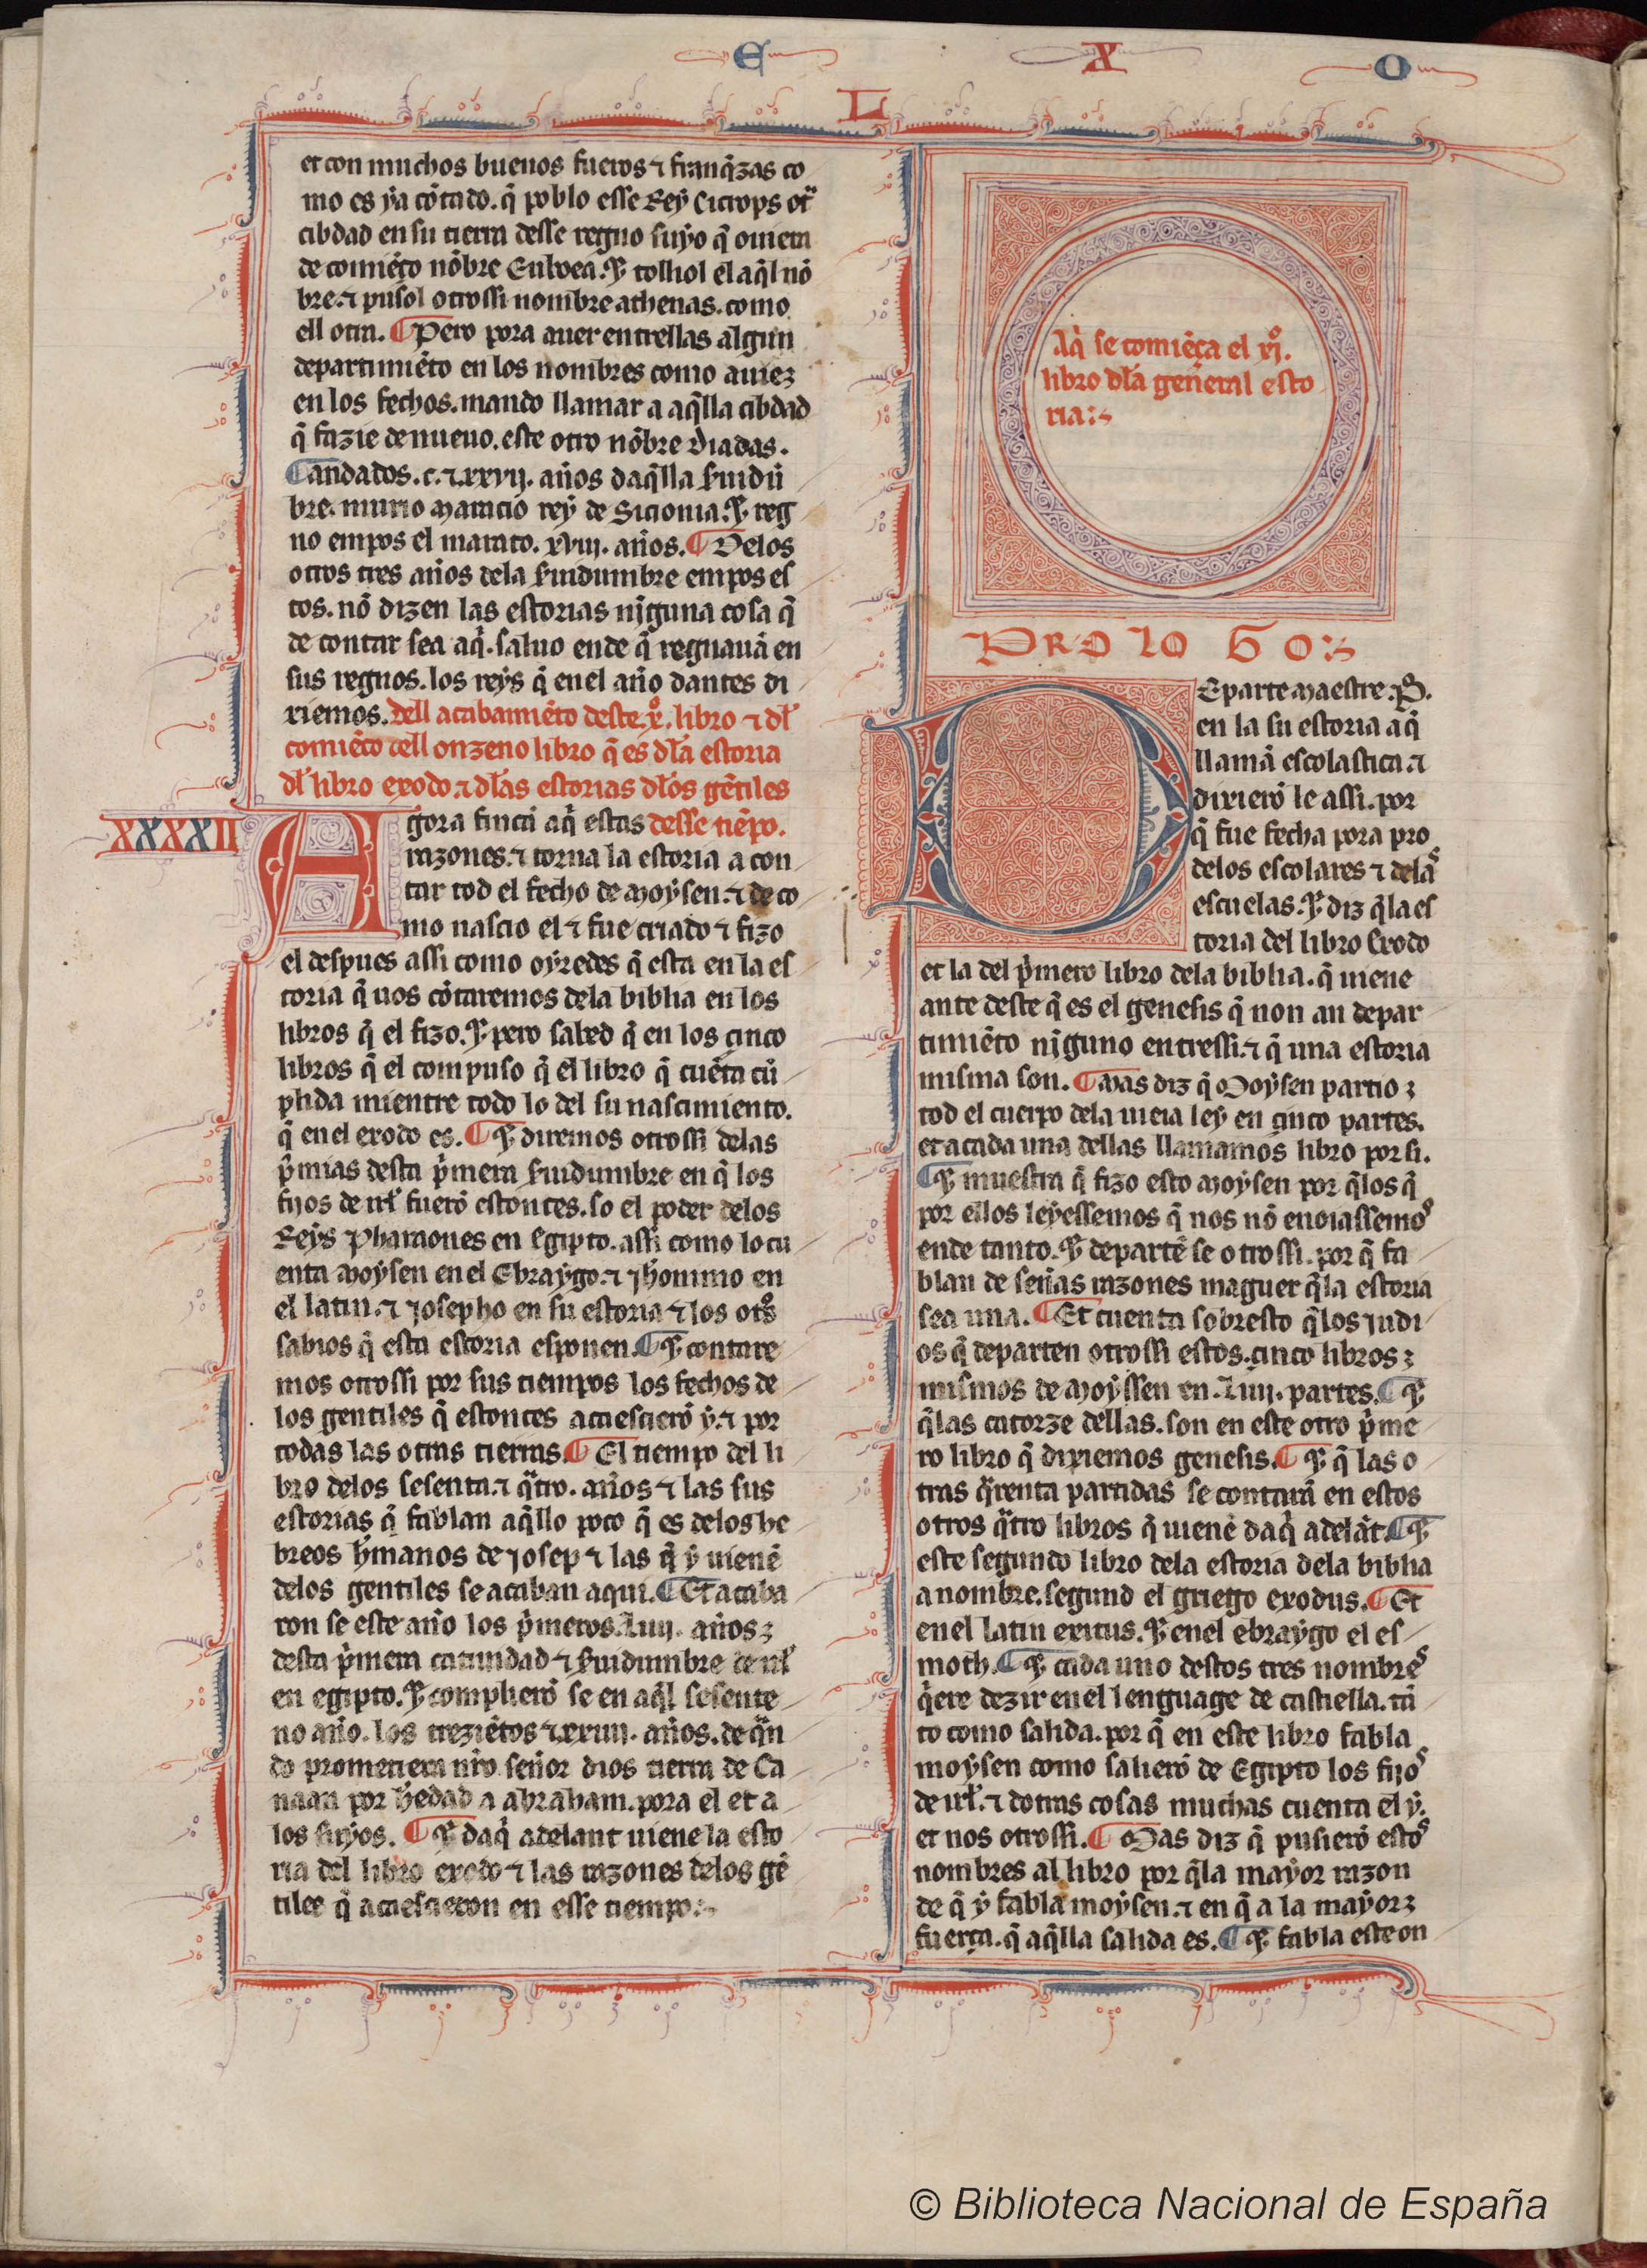 E X O
L
et con muchos buenos fueros ⁊ franq̃zas co
mo es ya cõtado. q̃ poblo esse Rey Cicrops ot̃
cibdad en su tierra desse regno suyo q̃ ouiera
de comiẽço nõbre Euloea. ⁊ tolliol el aq̃l nõ
bre. ⁊ pusol otrossi nombre athenas. como
ell otra. ¶ Pero pora auer entrellas algun
departimiẽto en los nombres como auiez
en los fechos. mando llamar a aq̃lla cibdad
q̃ fazie de nueuo. este otro nõbre Diadas.
¶ andados .c. ⁊ .xxvij. años daq̃lla ẜuidũ
bre. murio Maracio rey de Sicionia. ⁊ reg
no empos el marato. xviij. años. ¶ Delos
otros tres años dela ẜuidumbre empos es
tos. nõ dizen las estorias njguna cosa q̃
de contar sea aq̃. saluo ende q̃ regnauã en
sus regnos. los reys q̃ en el año dantes di
xiemos. Dell acabamiẽto deste .xº. libro ⁊ dl̃
comiẽço dell onzeno libro q̃ es dl̃a estoria
dl̃ libro exodo. ⁊ dl̃as estorias dl̃os gẽtiles
desse tiẽpo.
XXXXII
Agora finca aq̃ estas
razones. ⁊ torna la estoria a con
tar tod el fecho de Moysen. ⁊ de co
mo nascio el ⁊ fue criado ⁊ fizo
el despues assi como oyredes q̃ esta en la es
toria q̃ uos cõtaremos dela biblia en los
libros q̃ el fizo. ⁊ pero sabed q̃ en los çinco
libros q̃ el compuso q̃ el libro q̃ cuẽta cũ
plida mientre todo lo del su nascimiento.
q̃ en el exodo es. ¶ ⁊ diremos otrossi delas
p̃mias desta p̃mera ẜuidumbre en q̃ los
fijos de irl̃ fuerõ estonces. so el poder delos
Reys Pharaones en Egipto. assi como lo cu
enta Moysen en el Ebraygo. ⁊ Jheronimo en
el latin. ⁊ Josepho en su estoria ⁊ los ot̃s
sabios q̃ esta estoria esponen. ¶ ⁊ contare
mos otrossi por sus tiempos los fechos de
los gentiles q̃ estonces acaescierõ y. ⁊ por
todas las otras tierras. ¶ El tiempo del li
bro delos sesenta. ⁊ q̃tro. años ⁊ las sus
estorias q̃ fablan aq̃llo poco q̃ es delos he
breos h̃manos de Josep ⁊ las q̃ y uienẽ
delos gentiles se acaban aqui. ¶ Et acaba
ron se este año los p̃meros .Liiij. años
desta p̃mera catiuidad ⁊ ẜuidumbre de irl̃
en egipto. ⁊ complierõ se en aq̃l sesente
no año. los treziẽtos ⁊ .xxiiij. años. de q̃n
do prometiera nr̃o señor dios tierra de Ca
naan por h̃edad a abraham. pora el et a
los suyos. ¶ ⁊ daq̃ adelant uiene la esto
ria del libro exodo ⁊ las razones delos gẽ
tiles q̃ acaescieron en esse tiempo:~
Aq̃ se comiẽça el xjº.
libro dl̃a general esto
ria:~
PROLOGO:~
Departe Maestre .Pº.
en la su estoria a q̃
llamã escolastica. ⁊
dixierõ le assi. por
q̃ fue fecha pora pro
delos escolares ⁊ delas
escuelas. ⁊ diz q̃ la es
toria del libro Exodo
et la del p̃mero libro dela biblia. q̃ uiene
ante deste q̃ es el genesis q̃ non an depar
timiẽto njguno entressi. ⁊ q̃ una estoria
misma son. ¶ Mas diz q̃ Moysen partio
tod el cuerpo dela uieia ley en çinco partes.
et a cada una dellas llamamos libro por si.
¶ ⁊ muestra q̃ fizo esto Moysen por q̃ los q̃
por ellos leyessemos q̃ nos nõ enoiassemos
ende tanto. ⁊ departẽ se otrossi. por q̃ fa
blan de señas razones maguer q̃ la estoria
sea una. ¶ Et cuenta sobresto q̃ los judi
os q̃ departen otrossi estos. çinco libros
mismos de Moyssen en .Liiij. partes. ¶ ⁊
q̃ las catorze dellas. son en este otro p̃me
ro libro q̃ dixiemos genesis. ¶ ⁊ q̃ las o
tras q̃renta partidas se contarã en estos
otros q̃tro libros q̃ uienẽ daq̃ adelãt. ¶ ⁊
este segundo libro dela estoria dela biblia
a nombre. segund el griego exodus. ¶ Et
en el latin exitus. ⁊ en el ebraygo el es
moth. ¶ ⁊ cada uno destos tres nombres
q̃ere dezir en el lenguage de castiella. tã
to como salida. por q̃ en este libro fabla
moysen como salierõ de Egipto los fijos
de irl̃. ⁊ dotras cosas muchas cuenta el y.
et nos otrossi. ¶ Mas diz q̃ pusierõ estos
nombres al libro por q̃ la mayor razon
de q̃ y fabla moysen. ⁊ en q̃ a la mayor
fuerça. q̃ aq̃lla salida es. ¶ ⁊ fabla este on
© Biblioteca Nacional de España